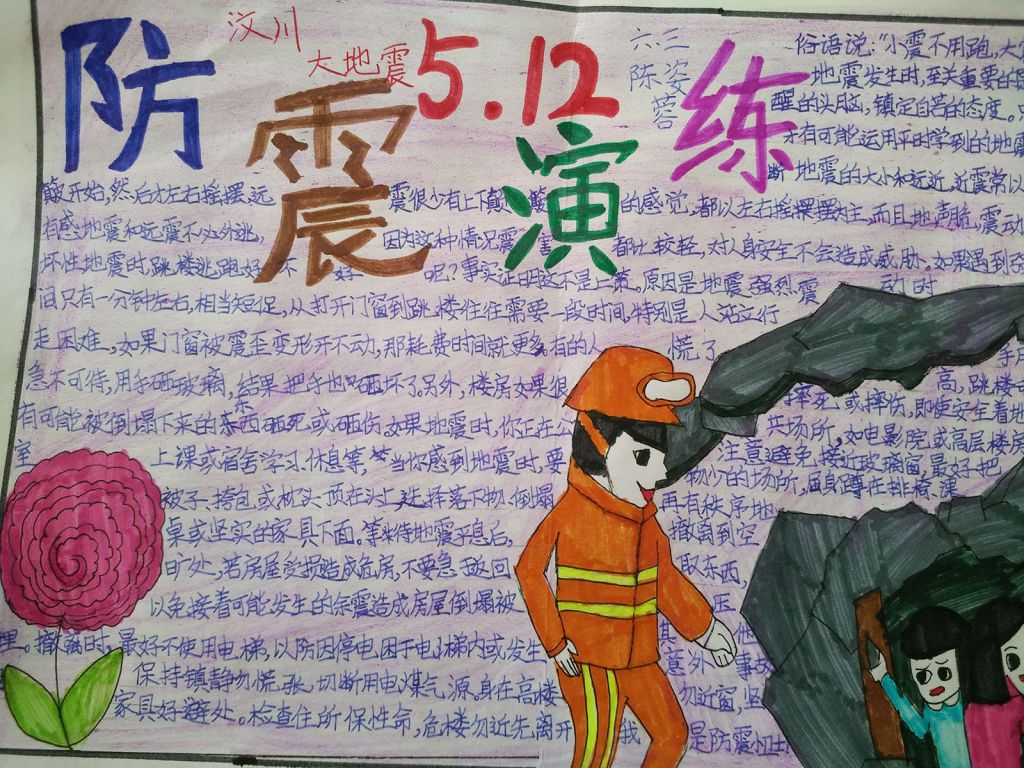 汶川
大地震
5.12
防震演练
六三
陈姿蓉
俗语说:“小震不用跑,大
地震发生时,至关重要的
醒的头脑,镇定自若的态度。
才有可能运用平时学到的地震
断地震的大小和远近,近震常以
颠开始,然后才左右摇摆,远震很少有上下颠颠的感觉,都以左右摇摆摆为主,而且地声脆,震动
有感地震和远震不必外逃,因为这种情况震害都比较轻,对人身安全不会造成威胁。如果遇到强
坏性地震时,跳楼逃跑好不好呢?事实证明这不是上策。原因是地震强烈震动时
间只有一分钟左右,相当短促,从打开门窗到跳楼往往需要一段时间,特别是人站立行
走困难,如果门窗被震歪变形开不动,那耗费时间就更多有的人慌了手
急不可待,用手砸玻璃,结果把手也砸坏了,另外,楼房如果很高,跳楼
东摔死或摔伤,即使安全着地
有可能被倒塌下来的东西砸死或砸伤,如果地震时,你正在公共场所,如电影院或高层楼房
室上课或宿舍学习、休息等,当你感到地震时,要注意避免接近玻璃窗,最好把
被子、挎包或枕头顶在头上选择落下物、倒塌物少的场所,屈身蹲在排椅、课
桌或坚实的家具下面。等待地震平息后,再有秩序地撤离到空
旷处,若房屋受损造成危房,不要急于返回取东西,
以免接着可能发生的余震造成房屋倒塌被压
里。撤离时,最好不使用电梯,以防因停电困于电梯内或发生其他
保持镇静勿慌张,切断用电煤气源,身在高楼意外事故
家具好避处。检查住所保性命,危楼勿近先离开勿近窗,坚
我是防震小卫士